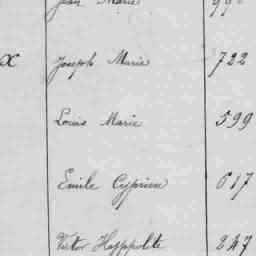 Jean Marie
x Joseph Marie 722
Louis Marie 599
Emile Cyprien 617
Victor Hyppolite 247